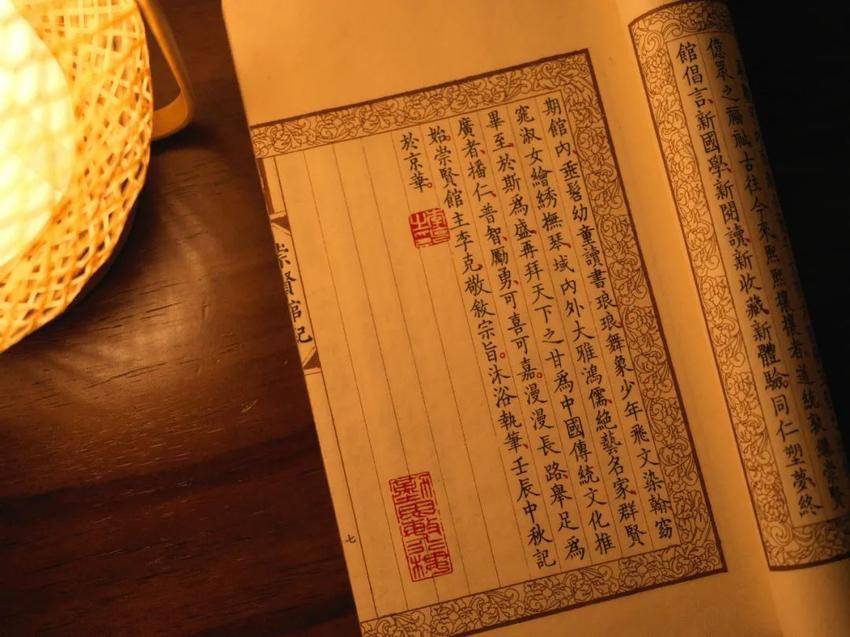 億眾之福祉古往今來熙熙攘攘者道統繼崇賢
館倡言、新國學、新閱讀、新收藏、新體驗。同仁塑夢終
期館內垂髫幼童讀書琅琅、舞象少年飛文染翰、窈
窕淑女繪綉撫琴、域內外大雅鴻儒、絕藝名家、群賢
畢至、於斯爲盛、再拜天下之甘爲中國傳統文化推
廣者、播仁、普智、勵勇、可喜可嘉。漫漫長路、舉足爲
始、崇賢館主李克敬敘宗旨。沐浴執筆、壬辰中秋記
於京華。
崇賢館記
七